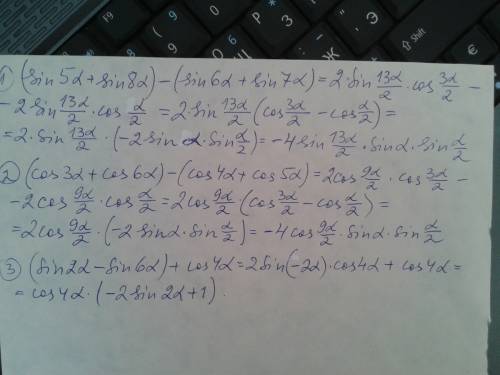 ① (sin 5α + sin 8α) − (sin 6α + sin 7α) = 2·sin 13α/2 · cos 3α/2 −
− 2 sin 13α/2 · cos α/2 = 2·sin 13α/2 (cos 3α/2 − cos α/2) =
= 2·sin 13α/2 · (−2 sin α · sin α/2) = −4 sin 13α/2 · sin α · sin α/2
② (cos 3α + cos 6α) − (cos 4α + cos 5α) = 2cos 9α/2 · cos 3α/2 −
− 2cos 9α/2 · cos α/2 = 2cos 9α/2 (cos 3α/2 − cos α/2) =
= 2cos 9α/2 · (−2 sin α · sin α/2) = −4 cos 9α/2 · sin α · sin α/2
③ (sin 2α − sin 6α) + cos 4α = 2 sin(−2α) · cos 4α + cos 4α =
= cos 4α · (−2 sin 2α + 1).